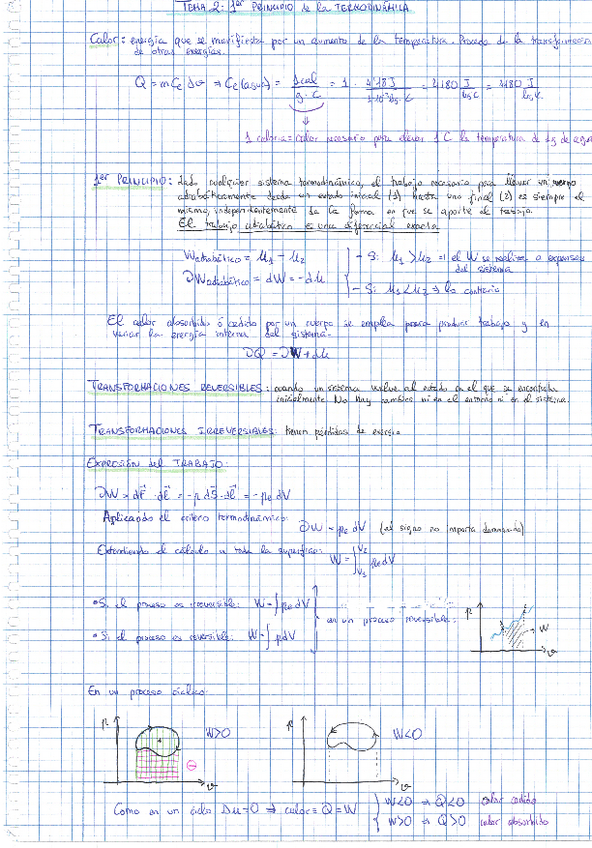 TEMA 2: 1er PRINCIPIO de la TERMODINÁMICA
Calor: energía que se manifiesta por un aumento de la temperatura. Procede de la transformación
de otras energías.
Q = m Ce Δθ ⇒ Ce (agua) = 1cal / g·C = 1 · 4'18 J / 1·10⁻³ kg·C = 4180 J / kg C = 4180 J / kg K
1 caloría = calor necesario para elevar 1 C la temperatura de 1g de agua
1er PRINCIPIO: dado cualquier sistema termodinámico, el trabajo necesario para llevar un cuerpo
adiabáticamente desde un estado inicial (1) hasta uno final (2) es siempre el
mismo, independientemente de la forma en que se aporte el trabajo.
El trabajo adiabático es una diferencial exacta
Wadiabático = U1 - U2
∂Wadiabático = dW = -dU
- Si U1 > U2 ⇒ el W se realiza a expensas
del sistema
- Si U1 < U2 ⇒ lo contrario
El calor absorbido ó cedido por un cuerpo se emplea para producir trabajo y en
variar la energía interna del sistema.
∂Q = ∂W + dU
TRANSFORMACIONES REVERSIBLES: cuando un sistema vuelve al estado en el que se encontraba
inicialmente. No hay cambios ni en el entorno ni en el sistema.
TRANSFORMACIONES IRREVERSIBLES: tienen pérdidas de energía
EXPRESIÓN del TRABAJO:
∂W = dF · dl = -p dS · dl = -pe dV
Aplicando el criterio termodinámico: ∂W = pe dV (el signo no importa demasiado)
Extendiendo el cálculo a toda la superficie: W = ∫V1 V2 pe dV
• Si el proceso es irreversible: W = ∫ pe dV
• Si el proceso es reversible: W = ∫ p dV
en un proceso reversible:
p
W
v
En un proceso cíclico:
p
W>0
v
p
W<0
v
Como en un ciclo Δu=0 ⇒ calor = Q = W
W<0 ⇒ Q<0 calor cedido
W>0 ⇒ Q>0 calor absorbido